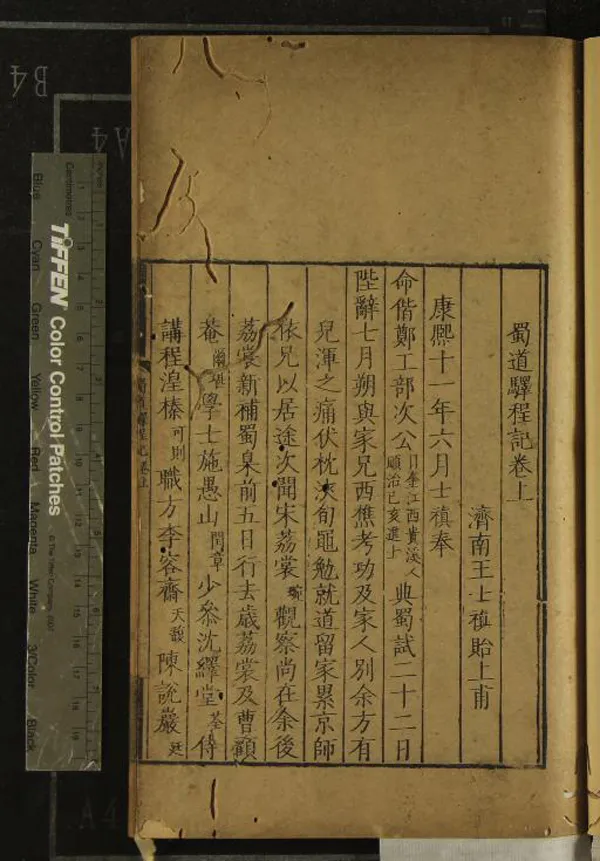 蜀道驛程記卷上
濟南王士禛貽上甫
康熙十一年六月士禛奉
命偕鄭工部次公日奎江西貴溪人順治己亥進士典蜀試二十二日
陛辭七月朔與家兄西樵考功及家人別余方有
兒渾之痛伏枕浹旬黽勉就道留家累京師
依兄以居途次聞宋荔裳琬觀察尚在余後
荔裳新補蜀臬前五日行去歲荔裳及曹顧
菴爾堪學士施愚山閏章少參沈繹堂荃侍
講程湟榛可則職方李容齋天馥陳說巖廷
蜀道驛程記卷上
B4
A4
A4
Centimetres
TIFFEN Color Control Patches
© The Tiffen Company, 2007
Blue
Cyan
Green
Yellow
Red
Magenta
White
3/Color
Black